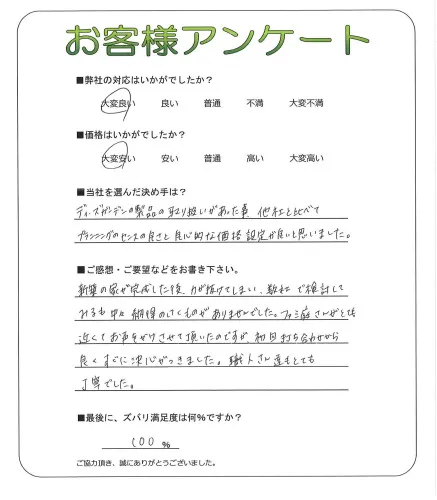 お客様アンケート
■弊社の対応はいかがでしたか？
大変良い 良い 普通 不満 大変不満
■価格はいかがでしたか？
大変安い 安い 普通 高い 大変高い
■当社を選んだ決め手は？
ディーズガーデンの製品の取り扱いがあった事、他社と比べて
プランニングのセンスの良さと良心的な価格設定が良いと思いました。
■ご感想・ご要望などをお書き下さい。
新築の家が完成した後、力が抜けてしまい、数社で検討して
みるも中々納得のいくものがありませんでした。ファミ庭さんがとても
近くてお声をかけさせて頂いたのですが、初回打ち合わせから
良くすぐに決心がつきました。職人さん達もとても
丁寧でした。
■最後に、ズバリ満足度は何%ですか？
100 %
ご協力頂き、誠にありがとうございました。